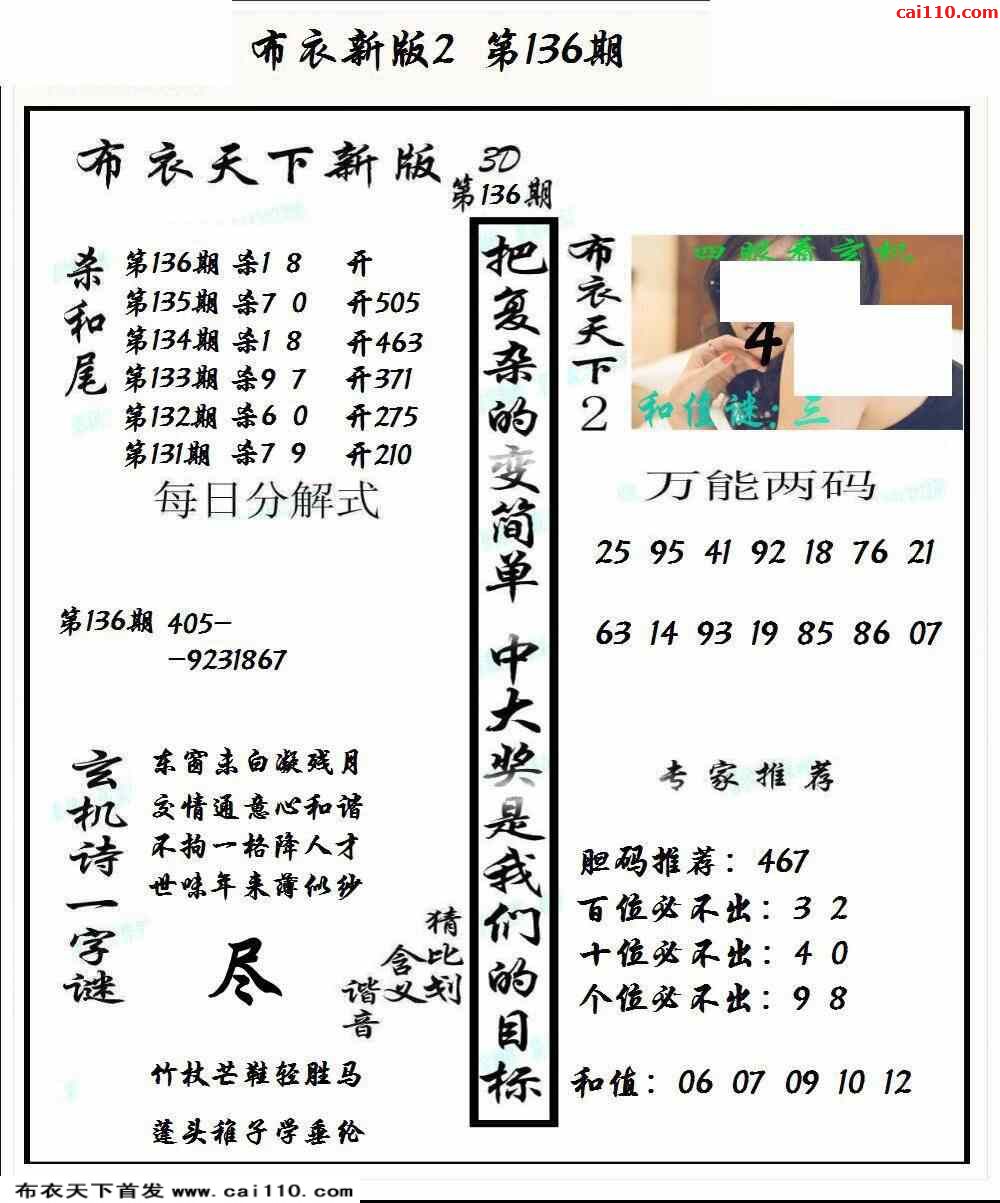 cai110.com
布衣新版2 第136期
布衣天下新版 3D
第136期
杀和尾
第136期 杀1 8 开
第135期 杀7 0 开505
第134期 杀1 8 开463
第133期 杀9 7 开371
第132期 杀6 0 开275
第131期 杀7 9 开210
每日分解式
第136期 405-
-9231867
玄机诗一字谜
东窗未白凝残月
交情通意心和谐
不拘一格降人才
世味年来薄似纱
尽
猜比划
含义
谐音
竹杖芒鞋轻胜马
蓬头稚子学垂纶
把复杂的变简单 中大奖是我们的目标
布衣天下2
四眼看玄机
4
和值谜:三
万能两码
25 95 41 92 18 76 21
63 14 93 19 85 86 07
专家推荐
胆码推荐：467
百位必不出：3 2
十位必不出：4 0
个位必不出：9 8
和值：06 07 09 10 12
布衣天下首发 www.cai110.com